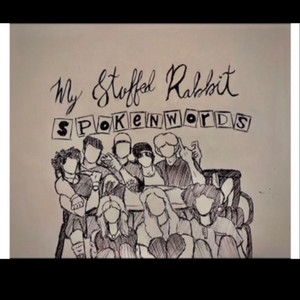 My Stuffed Rabbit
SPOKENWORDS